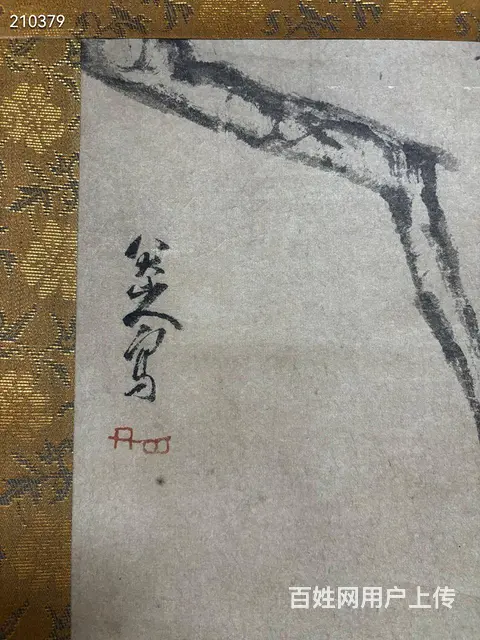 210379
八大山人寫
百姓网用户上传